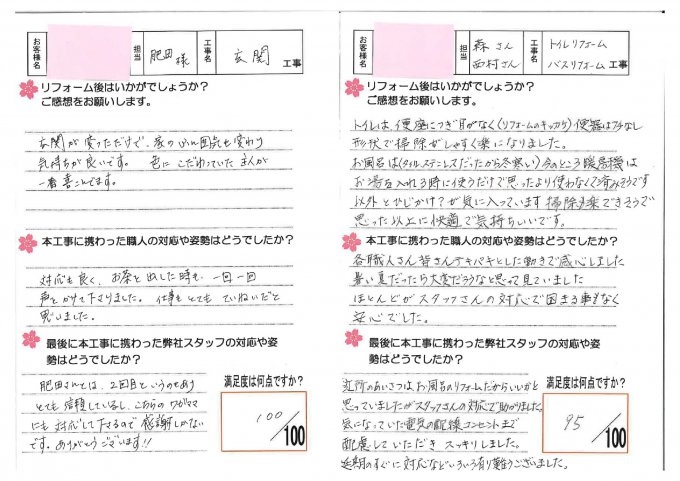 お客様名
担当
肥田様
工事名
玄関
工事
リフォーム後はいかがでしょうか?
ご感想をお願いします。
玄関が変っただけで、家のふん囲気も変わり
気持ちが良いです。 色にこだわっていた主人が
一番喜こんでます。
本工事に携わった職人の対応や姿勢はどうでしたか?
対応も良く、お茶と出した時も、一回一回
声をかけて下さりました。仕事もとてもていねいだと
思いました。
最後に本工事に携わった弊社スタッフの対応や姿
勢はどうでしたか?
肥田さんとは、2回目というのもあり
とても信頼しているし、こちらのワガママ
にも対応して下さるので感謝しかない
です。ありがとうございます!!
満足度は何点ですか?
100/100
お客様名
担当
森さん
西村さん
工事名
トイレリフォーム
バスリフォーム
工事
リフォーム後はいかがでしょうか?
ご感想をお願いします。
トイレは、便座につぎ目がなく(リフォームのキッカケ)便器はフチなし
形状で掃除がしやすく楽になりました。
お風呂は(タイル、ステンレスだったから冬寒い)今のところ暖房機は
お湯を入れる時に使うだけで思ったより使わなくて済みそうです
以外とひじかけ?が気に入っています 掃除も楽できそうで
思った以上に快適で気持ちいいです。
本工事に携わった職人の対応や姿勢はどうでしたか?
各職人さん皆さんテキパキとした動きで感心しました
暑い夏だったら大変だろうなと思って見ていました
ほとんどがスタッフさんの対応で困まる事もなく
安心でした。
最後に本工事に携わった弊社スタッフの対応や姿
勢はどうでしたか?
近所のあいさつは、お風呂のリフォームだからいいかと
思っていましたがスタッフさんの対応で助かりました。
気になっていた電気の配線、コンセントまで
配慮していただきスッキリしました。
延期のすぐに対応などいろいろ有り難うございました。
満足度は何点ですか?
95/100